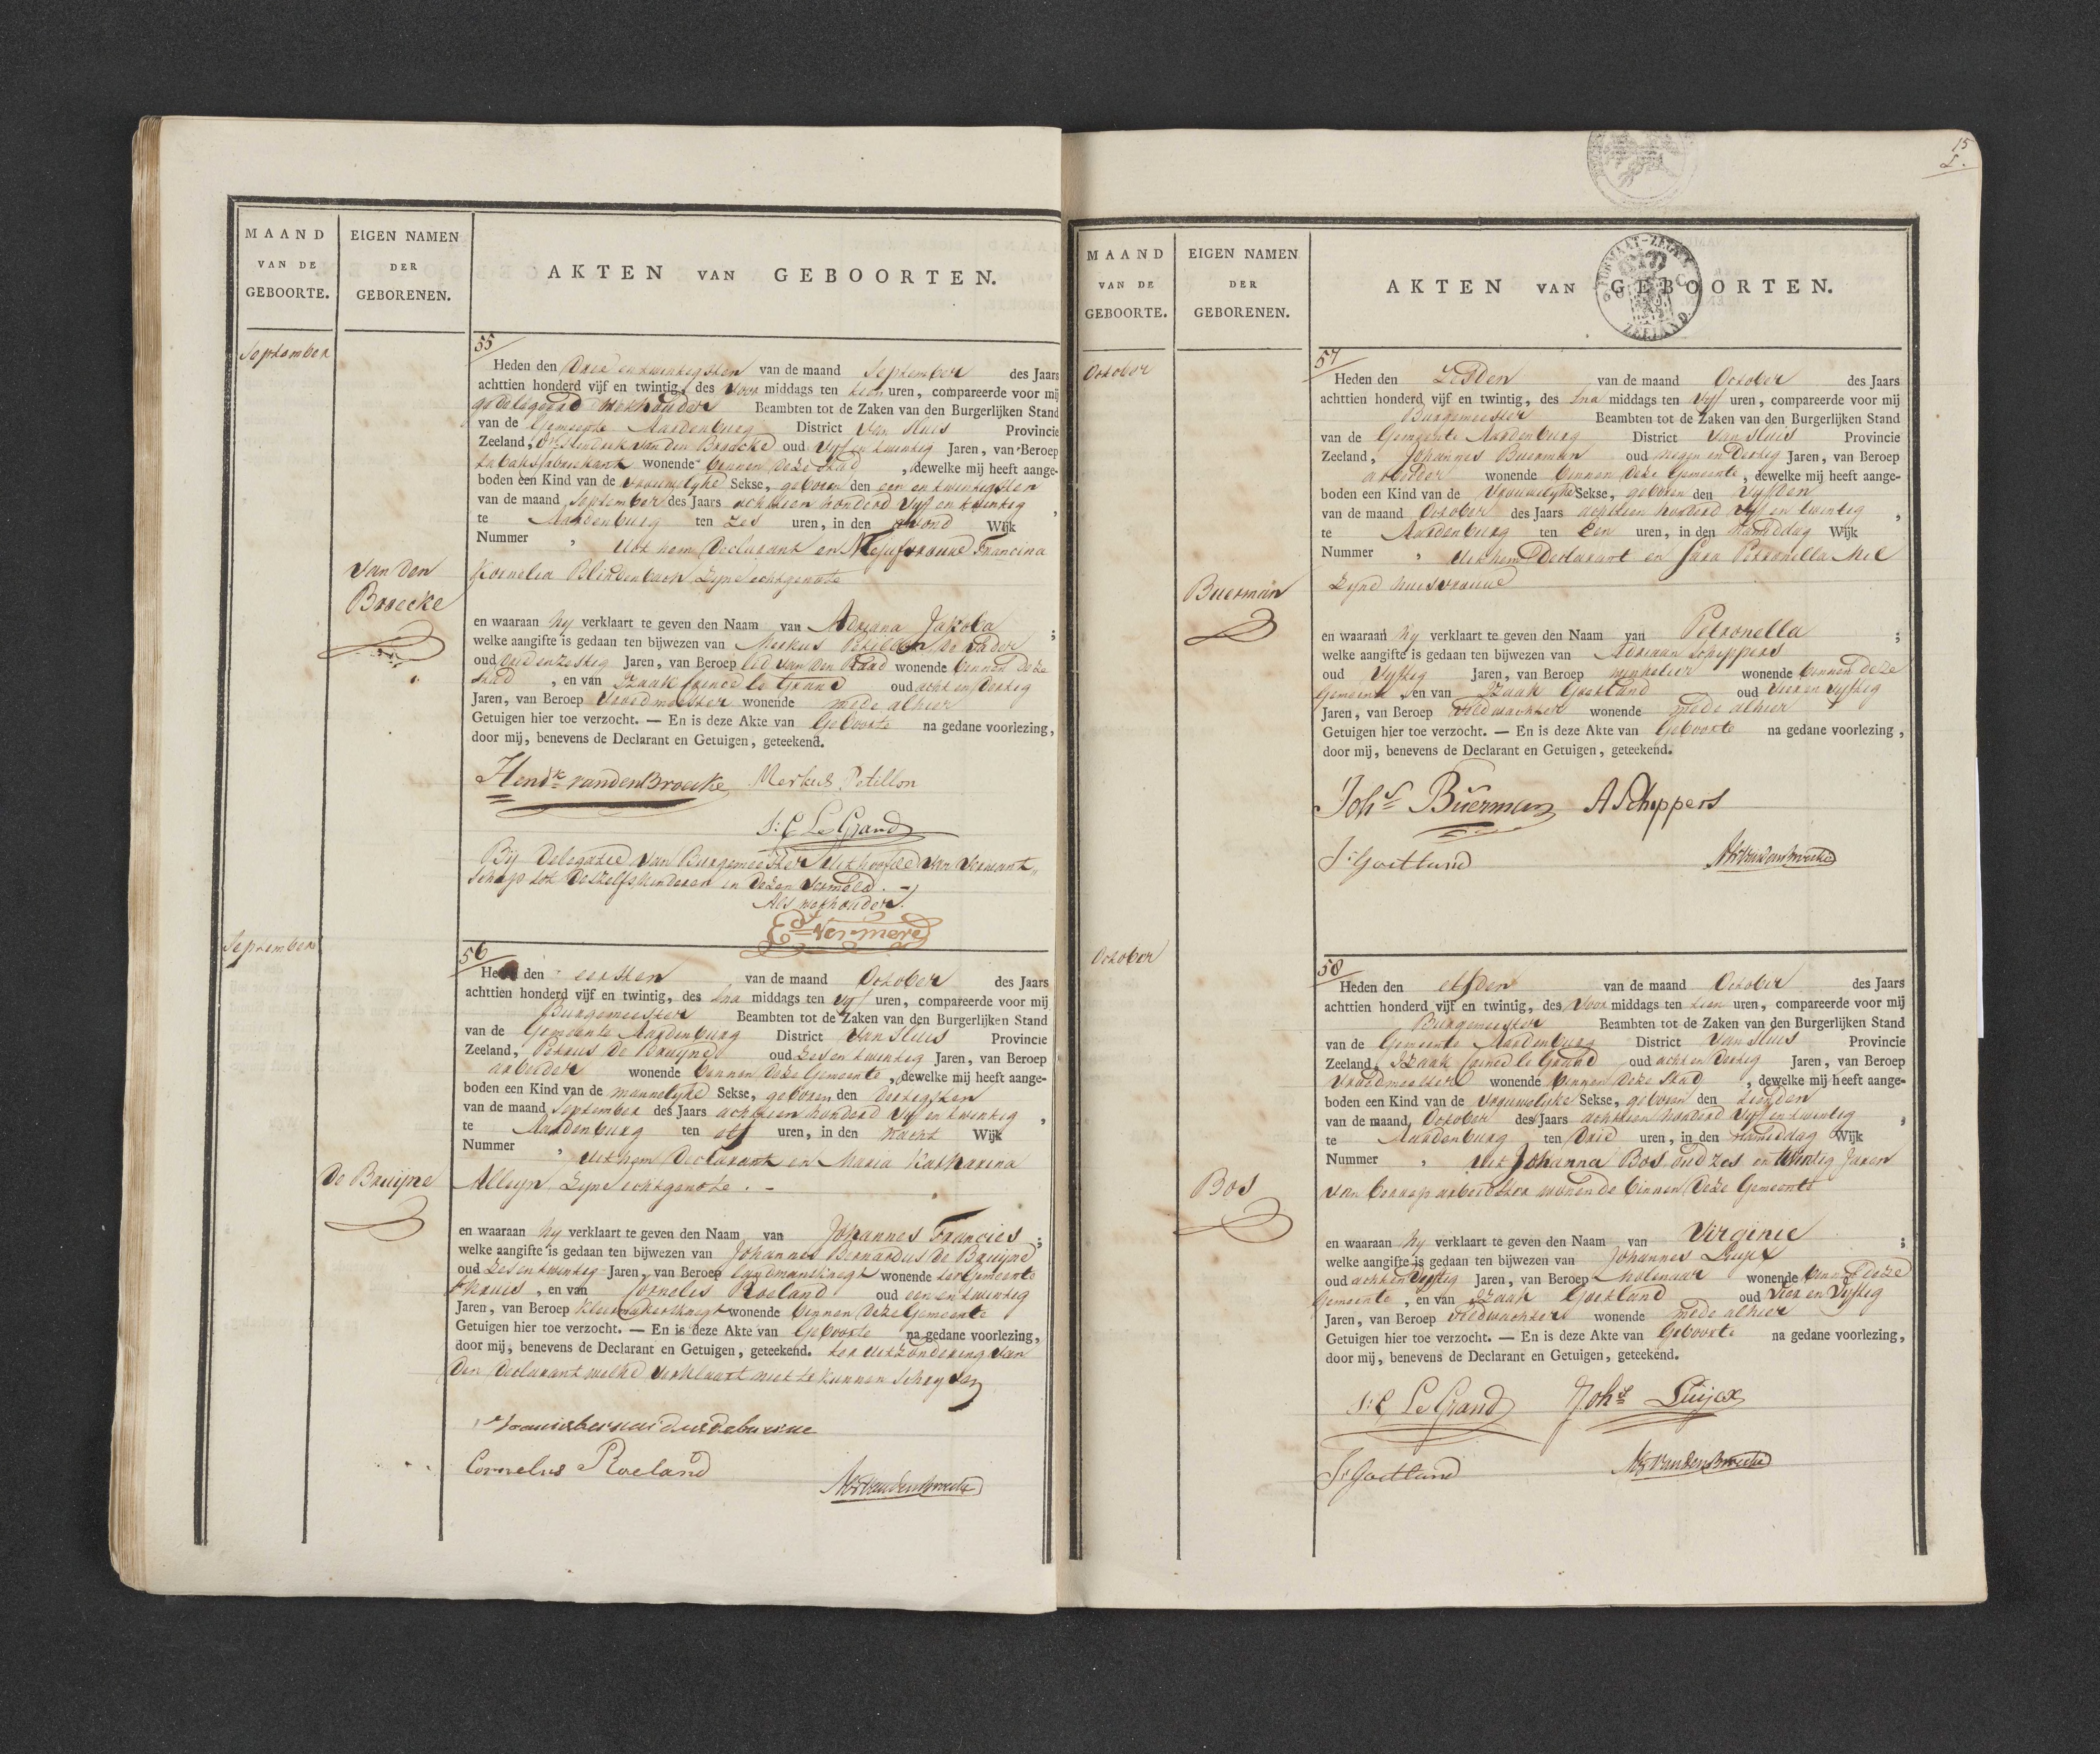 MAAND
VAN DE
GEBOORTE.
EIGEN NAMEN
DER
GEBORENEN.
AKTEN VAN GEBOORTEN.
September
55
Heden den Drie en twintigsten van de maand September des Jaars
achttien honderd vijf en twintig, des Voor middags ten tien uren, compareerde voor mij
gedelegeerd Wethouder Beambten tot de Zaken van den Burgerlijken Stand
van de Gemeente Aardenburg District Van Sluis Provincie
Zeeland, Hendrik van den Broecke oud Vyf en twintig Jaren, van Beroep
tabaksfabriekant wonende binnen deze Stad, dewelke mij heeft aange-
boden een Kind van de Vrouwelyke Sekse, geboren den een en twintigsten
van de maand September des Jaars achttien honderd Vyf en twintig,
te Aardenburg ten Zes uren, in den avond Wijk
Nummer , Uit hem Declarant en Mejufvrouwe Francina
Van den
Broecke
Kornelia Blindenbach Zyne echtgenote
en waaraan hy verklaart te geven den Naam van Adriana Jakoba ;
welke aangifte is gedaan ten bijwezen van Merkus Petillon de Vader
oud drie en zestig Jaren, van Beroep lid van den Raad wonende binnen deze
Stad, en van Izaak le Grand oud acht en dertig
Jaren, van Beroep Vroedmeester wonende mede alhier
Getuigen hier toe verzocht. — En is deze Akte van Geboorte na gedane voorlezing,
door mij, benevens de Declarant en Getuigen, geteekend.
Hendk van den Broecke Merkus Petillon
I: C Le Grand
Bij Delegatie van Burgemeester uit hoofde van Verwant-
schap tot deszelfs kinderen in dezen vermeld. -
Als wethouder.
Ed Vermere
September
56
Heden den eersten van de maand October des Jaars
achttien honderd vijf en twintig, des na middags ten vyf uren, compareerde voor mij
Burgemeester Beambten tot de Zaken van den Burgerlijken Stand
van de Gemeente Aardenburg District Van Sluis Provincie
Zeeland, Petrus De Bruyne oud Zes en twintig Jaren, van Beroep
arbeider wonende binnen deze Gemeente, dewelke mij heeft aange-
boden een Kind van de mannelyke Sekse, geboren den dertigsten
van de maand September des Jaars achttien honderd Vyf en twintig,
te Aardenburg ten elf uren, in den Nacht Wijk
Nummer , Uit hem Declarant en Maria Katharina
De Bruijne
Alleyn Zyne echtgenote. -
en waaraan hy verklaart te geven den Naam van Johannes Francies ;
welke aangifte is gedaan ten bijwezen van Johannes Bernardus de Bruyne
oud Zes en twintig Jaren, van Beroep landmansknegt wonende ter Gemeente
St Kruis, en van Cornelis Roeland oud een en twintig
Jaren, van Beroep kleermakersknegt wonende binnen deze Gemeente
Getuigen hier toe verzocht. — En is deze Akte van Geboorte na gedane voorlezing,
door mij, benevens de Declarant en Getuigen, geteekend. ter uitzondering van
den Declarant welke verklaart niet te kunnen schryven
Cornelus Roeland
15
MAAND
VAN DE
GEBOORTE.
EIGEN NAMEN
DER
GEBORENEN.
AKTEN VAN GEBOORTEN.
ZEELAND
October
57
Heden den Zesden van de maand October des Jaars
achttien honderd vijf en twintig, des na middags ten Vyf uren, compareerde voor mij
Burgemeester Beambten tot de Zaken van den Burgerlijken Stand
van de Gemeente Aardenburg District Van Sluis Provincie
Zeeland, Johannes Buerman oud negen en Dertig Jaren, van Beroep
arbeider wonende binnen deze Gemeente, dewelke mij heeft aange-
boden een Kind van de Vrouwelyke Sekse, geboren den Vyfden
van de maand October des Jaars achttien honderd Vyf en twintig,
te Aardenburg ten Een uren, in den Namiddag Wijk
Nummer , Uit hem Declarant en Sara Petronella Mel
Buerman
Zyne huisvrouwe
en waaraan hy verklaart te geven den Naam van Petronella ;
welke aangifte is gedaan ten bijwezen van Adriaan Schippers
oud Vyftig Jaren, van Beroep winkelier wonende binnen deze
Gemeente, en van Izaak Goetland oud Vier en Vyftig
Jaren, van Beroep Veldwachter wonende mede alhier
Getuigen hier toe verzocht. — En is deze Akte van Geboorte na gedane voorlezing,
door mij, benevens de Declarant en Getuigen, geteekend.
Johs Büerman A Schippers
I: Goetland
October
58
Heden den elfden van de maand October des Jaars
achttien honderd vijf en twintig, des Voor middags ten tien uren, compareerde voor mij
Burgemeester Beambten tot de Zaken van den Burgerlijken Stand
van de Gemeente Aardenburg District Van Sluis Provincie
Zeeland, Izaak le Grand oud acht en dertig Jaren, van Beroep
Vroedmeester wonende binnen deze Stad, dewelke mij heeft aange-
boden een Kind van de Vrouwelyke Sekse, geboren den tienden
van de maand October des Jaars achttien honderd Vyf en twintig,
te Aardenburg ten Drie uren, in den Namiddag Wijk
Nummer , Uit Johanna Bos oud Zes en twintig Jaren
Bos
van beroep arbeidster wonende binnen deze Gemeente
en waaraan hy verklaart te geven den Naam van Virginie ;
welke aangifte is gedaan ten bijwezen van Johannes Luijcx
oud acht en Vyftig Jaren, van Beroep Molenaar wonende binnen deze
Gemeente, en van Izaak Goetland oud Vier en Vyftig
Jaren, van Beroep Veldwachter wonende mede alhier
Getuigen hier toe verzocht. — En is deze Akte van Geboorte na gedane voorlezing,
door mij, benevens de Declarant en Getuigen, geteekend.
I: C Le Grand Johs Luijcx
I: Goetland